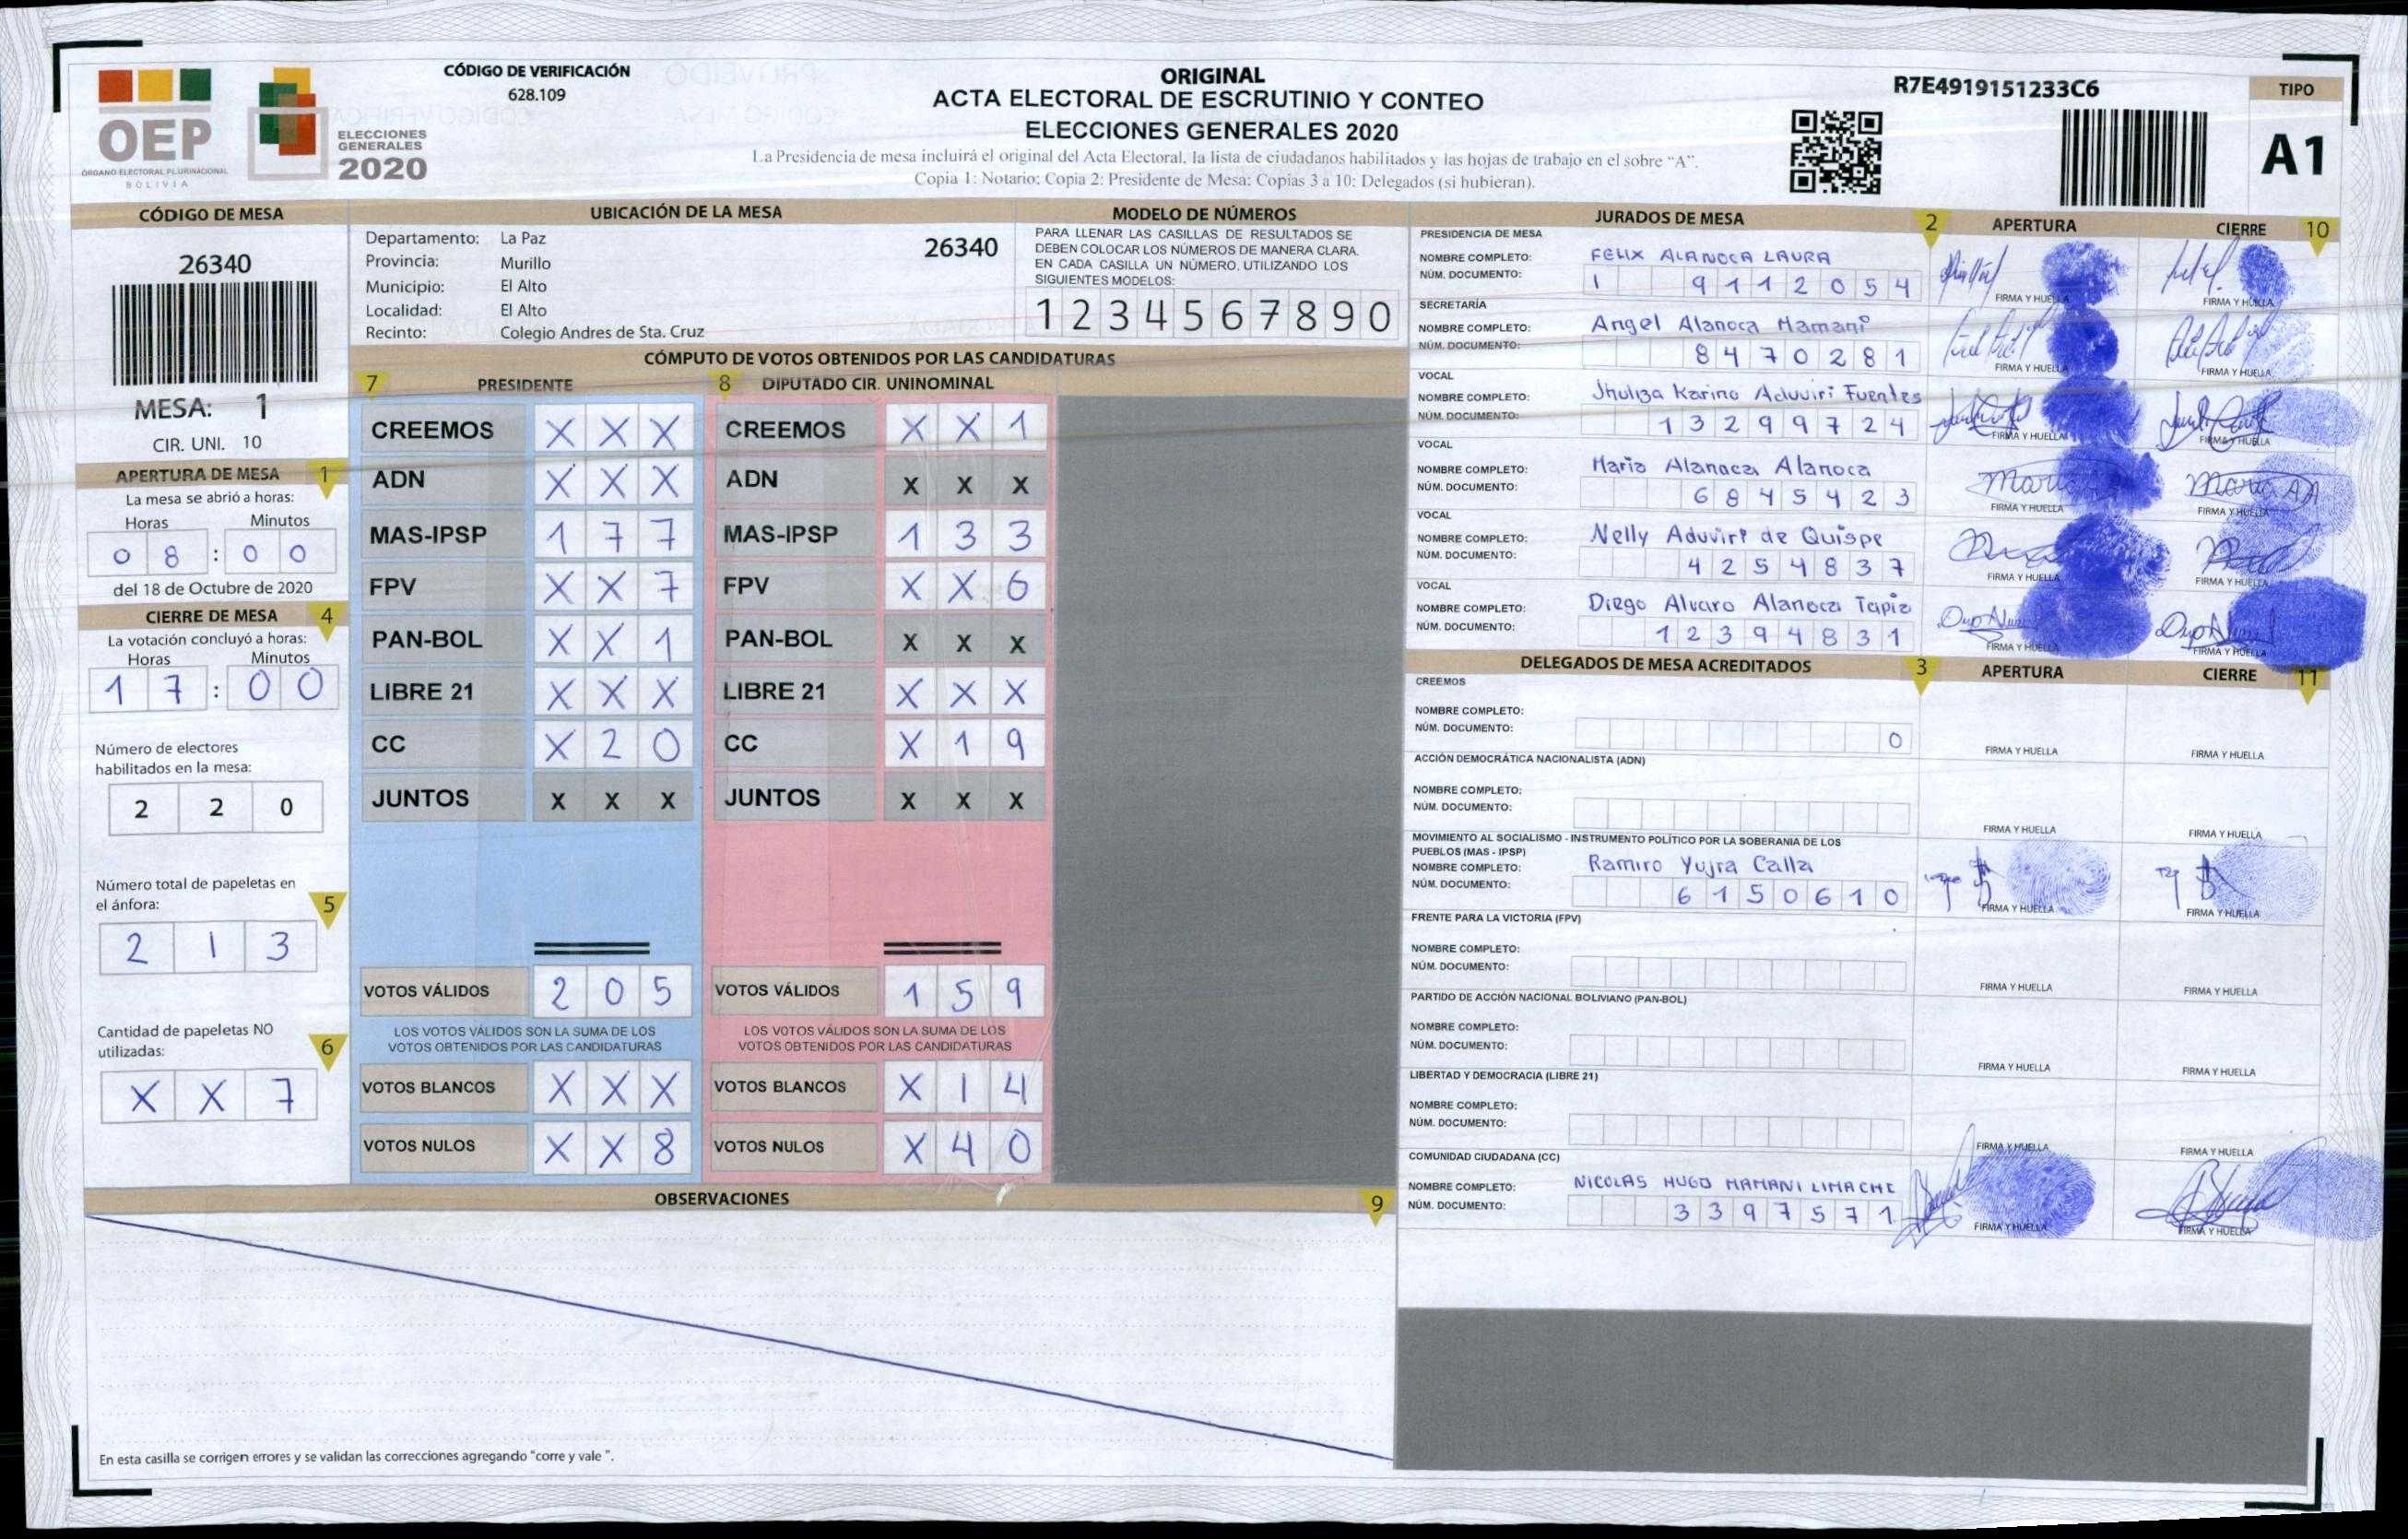 OEP
ÓRGANO ELECTORAL PLURINACIONAL
BOLIVIA
ELECCIONES
GENERALES
2020
CÓDIGO DE VERIFICACIÓN
628.109
ORIGINAL
ACTA ELECTORAL DE ESCRUTINIO Y CONTEO
ELECCIONES GENERALES 2020
La Presidencia de mesa incluirá el original del Acta Electoral, la lista de ciudadanos habilitados y las hojas de trabajo en el sobre "A".
Copia 1: Notario; Copia 2: Presidente de Mesa; Copias 3 a 10: Delegados (si hubieran).
R7E4919151233C6
TIPO
A1
CÓDIGO DE MESA
26340
MESA: 1
CIR. UNI. 10
APERTURA DE MESA 1
La mesa se abrió a horas:
Horas Minutos
0 8 : 0 0
del 18 de Octubre de 2020
CIERRE DE MESA 4
La votación concluyó a horas:
Horas Minutos
1 7 : 0 0
Número de electores
habilitados en la mesa:
2 2 0
Número total de papeletas en
el ánfora: 5
2 1 3
Cantidad de papeletas NO
utilizadas: 6
X X 7
UBICACIÓN DE LA MESA
Departamento: La Paz 26340
Provincia: Murillo
Municipio: El Alto
Localidad: El Alto
Recinto: Colegio Andres de Sta. Cruz
MODELO DE NÚMEROS
PARA LLENAR LAS CASILLAS DE RESULTADOS SE
DEBEN COLOCAR LOS NÚMEROS DE MANERA CLARA.
EN CADA CASILLA UN NÚMERO, UTILIZANDO LOS
SIGUIENTES MODELOS:
1 2 3 4 5 6 7 8 9 0
CÓMPUTO DE VOTOS OBTENIDOS POR LAS CANDIDATURAS
7 PRESIDENTE 8 DIPUTADO CIR. UNINOMINAL
CREEMOS X X X CREEMOS X X 1
ADN X X X ADN X X X
MAS-IPSP 1 7 7 MAS-IPSP 1 3 3
FPV X X 7 FPV X X 6
PAN-BOL X X 1 PAN-BOL X X X
LIBRE 21 X X X LIBRE 21 X X X
CC X 2 0 CC X 1 9
JUNTOS X X X JUNTOS X X X
VOTOS VÁLIDOS 2 0 5 VOTOS VÁLIDOS 1 5 9
LOS VOTOS VÁLIDOS SON LA SUMA DE LOS LOS VOTOS VÁLIDOS SON LA SUMA DE LOS
VOTOS OBTENIDOS POR LAS CANDIDATURAS VOTOS OBTENIDOS POR LAS CANDIDATURAS
VOTOS BLANCOS X X X VOTOS BLANCOS X 1 4
VOTOS NULOS X X 8 VOTOS NULOS X 4 0
OBSERVACIONES 9
En esta casilla se corrigen errores y se validan las correcciones agregando "corre y vale ".
JURADOS DE MESA 2 APERTURA CIERRE 10
PRESIDENCIA DE MESA
NOMBRE COMPLETO: FELIX ALANOCA LAURA
NÚM. DOCUMENTO: 1 9 1 1 2 0 5 4
FIRMA Y HUELLA FIRMA Y HUELLA
SECRETARÍA
NOMBRE COMPLETO: Angel Alanoca Mamani
NÚM. DOCUMENTO: 8 4 7 0 2 8 1
FIRMA Y HUELLA FIRMA Y HUELLA
VOCAL
NOMBRE COMPLETO: Jhuliza Karina Aduviri Fuentes
NÚM. DOCUMENTO: 1 3 2 9 9 7 2 4
FIRMA Y HUELLA FIRMA Y HUELLA
VOCAL
NOMBRE COMPLETO: Maria Alanoca Alanoca
NÚM. DOCUMENTO: 6 8 4 5 4 2 3
FIRMA Y HUELLA FIRMA Y HUELLA
VOCAL
NOMBRE COMPLETO: Nelly Aduviri de Quispe
NÚM. DOCUMENTO: 4 2 5 4 8 3 7
FIRMA Y HUELLA FIRMA Y HUELLA
VOCAL
NOMBRE COMPLETO: Diego Alvaro Alanoca Tapia
NÚM. DOCUMENTO: 1 2 3 9 4 8 3 1
FIRMA Y HUELLA FIRMA Y HUELLA
DELEGADOS DE MESA ACREDITADOS 3 APERTURA CIERRE 11
CREEMOS
NOMBRE COMPLETO:
NÚM. DOCUMENTO: 0
FIRMA Y HUELLA FIRMA Y HUELLA
ACCIÓN DEMOCRÁTICA NACIONALISTA (ADN)
NOMBRE COMPLETO:
NÚM. DOCUMENTO:
FIRMA Y HUELLA FIRMA Y HUELLA
MOVIMIENTO AL SOCIALISMO - INSTRUMENTO POLÍTICO POR LA SOBERANIA DE LOS
PUEBLOS (MAS - IPSP)
NOMBRE COMPLETO: Ramiro Yujra Calla
NÚM. DOCUMENTO: 6 1 5 0 6 1 0
FIRMA Y HUELLA FIRMA Y HUELLA
FRENTE PARA LA VICTORIA (FPV)
NOMBRE COMPLETO:
NÚM. DOCUMENTO:
FIRMA Y HUELLA FIRMA Y HUELLA
PARTIDO DE ACCIÓN NACIONAL BOLIVIANO (PAN-BOL)
NOMBRE COMPLETO:
NÚM. DOCUMENTO:
FIRMA Y HUELLA FIRMA Y HUELLA
LIBERTAD Y DEMOCRACIA (LIBRE 21)
NOMBRE COMPLETO:
NÚM. DOCUMENTO:
FIRMA Y HUELLA FIRMA Y HUELLA
COMUNIDAD CIUDADANA (CC)
NOMBRE COMPLETO: NICOLAS HUGO MAMANI LIMACHI
NÚM. DOCUMENTO: 3 3 9 7 5 7 1
FIRMA Y HUELLA FIRMA Y HUELLA